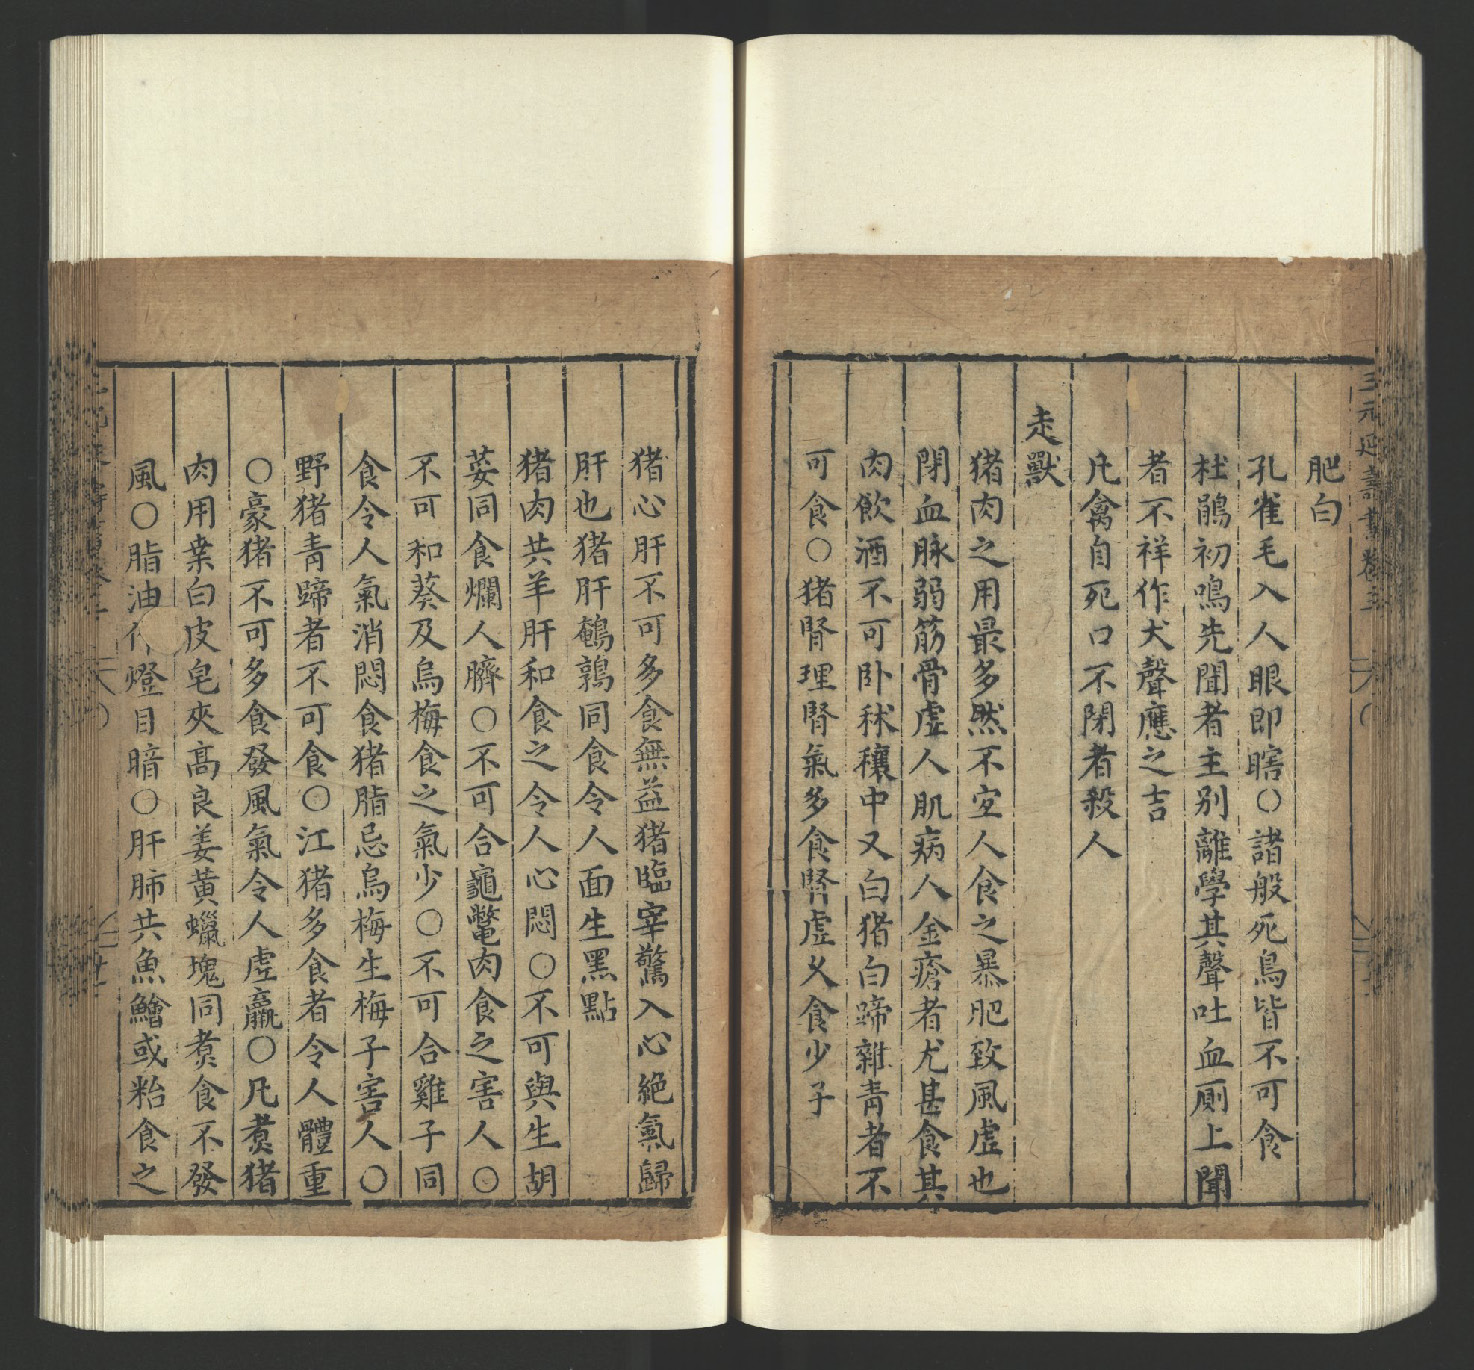 三元延壽書卷三
肥白
孔雀毛入人眼即瞎○諸般死鳥皆不可食
杜鵑初鳴先聞者主别離學其聲吐血厠上聞
者不祥作犬聲應之吉
凡禽自死口不閉者殺人
走獸
猪肉之用最多然不宐人食之暴肥致風虚也
閉血脉弱筋骨虚人肌病人金瘡者尤甚食其
肉飲酒不可卧秫穰中又白猪白蹄雜青者不
可食○猪腎理腎氣多食腎虚乂食少子
猪心肝不可多食無益猪臨宰驚入心絶氣歸
肝也猪肝鵪鶉同食令人面生黑點
猪肉共羊肝和食之令人心悶○不可與生胡
荽同食爛人臍○不可合龜鼈肉食之害人○
不可和葵及烏梅食之氣少○不可合雞子同
食令人氣消悶食猪脂忌烏梅生梅子害人○
野猪青蹄者不可食○江猪多食者令人體重
○豪猪不可多食發風氣令人虚羸○凡煑猪
肉用桒白皮皂夾高良姜黄蠟塊同煑食不發
風○脂油燈目暗○肝肺共魚鱠或粘食之